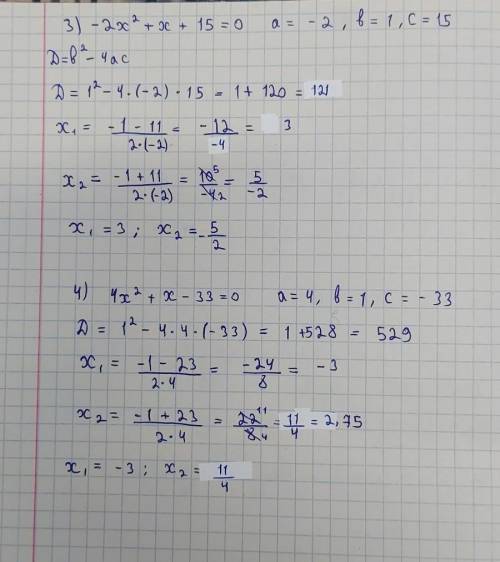 3) -2x² + x + 15 = 0 a = -2, b = 1, c = 15
D = b² - 4ac
D = 1² - 4·(-2)·15 = 1 + 120 = 121
x₁ = (-1 - 11)/(2·(-2)) = -12/-4 = 3
x₂ = (-1 + 11)/(2·(-2)) = 10⁵/-4₂ = 5/-2
x₁ = 3; x₂ = -5/2
4) 4x² + x - 33 = 0 a = 4, b = 1, c = -33
D = 1² - 4·4·(-33) = 1 + 528 = 529
x₁ = (-1 - 23)/(2·4) = -24/8 = -3
x₂ = (-1 + 23)/(2·4) = 22¹¹/8₄ = 11/4 = 2,75
x₁ = -3; x₂ = 11/4